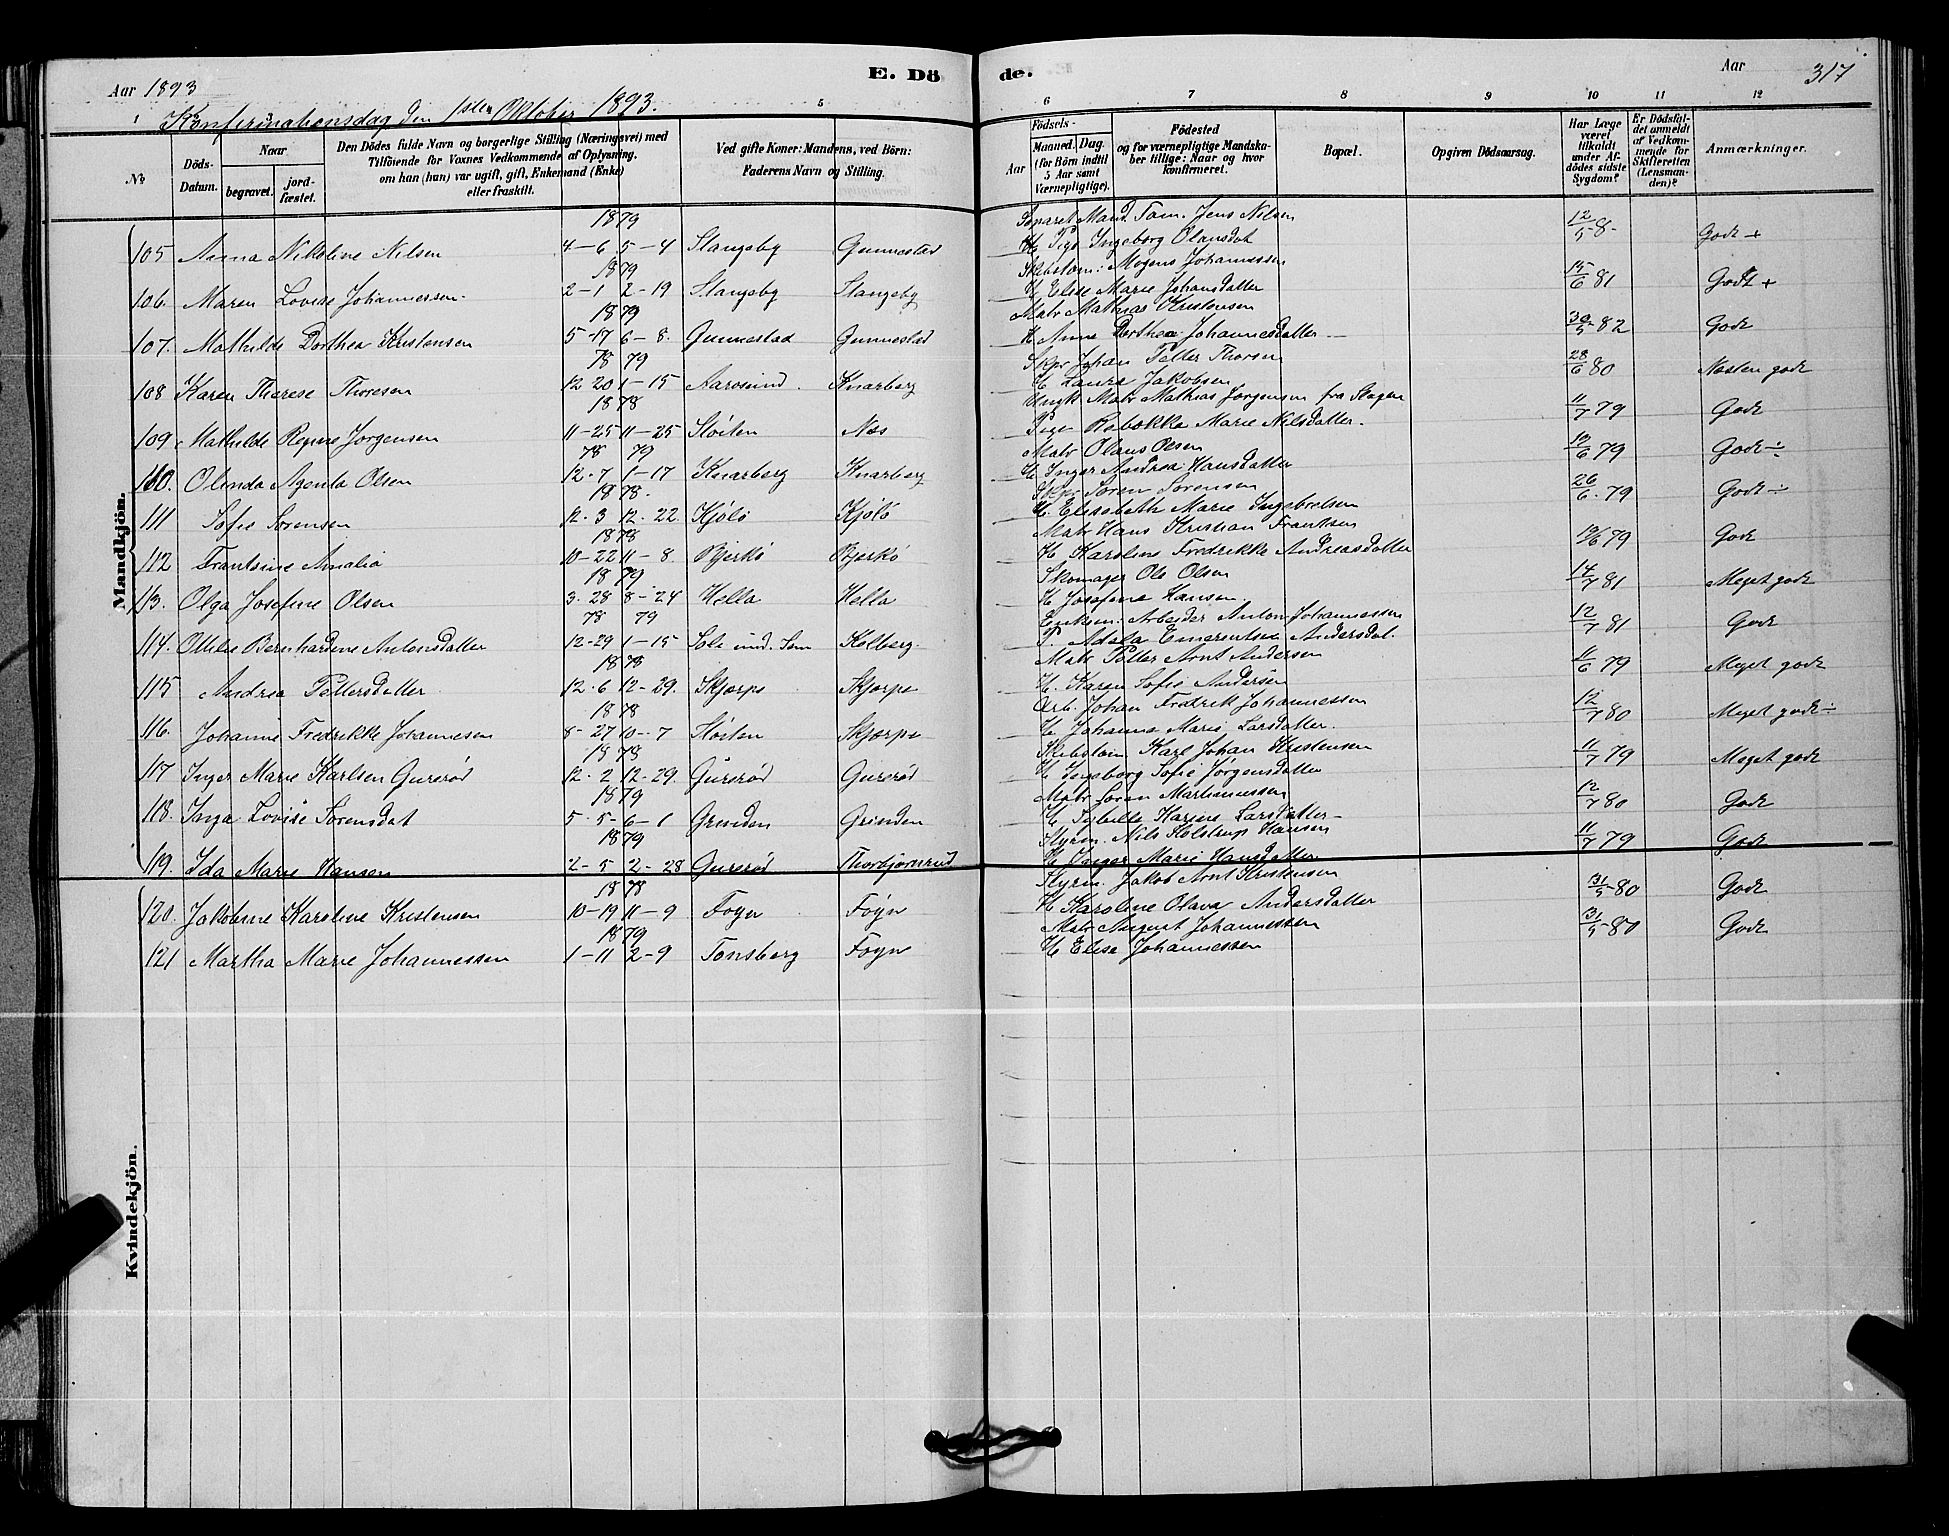 Aar 1893
E. Dö
de.
Aar
317
Konfirmationsdag den 1ste Oktober 1893.
1 3 5 6 7 8 9 10 11 12
No
Döds-Datum.
Naar
begravet.
jord-fæstet.
Den Dödes fulde Navn og borgerlige Stilling (Næringsvei) med Tilföiende for Voxnes Vedkommende af Oplysning, om han (hun) var ugift, gift, Enkemand (Enke) eller fraskilt.
Ved gifte Koner: Mandens, ved Börn: Faderens Navn og Stilling.
Födsels-
Aar
Maaned. Dag.
(for Börn indtil 5 Aar samt Værnepligtige).
Födested og for værnepligtige Mandskaber tillige: Naar og hvor konfirmeret.
Bopæl.
Opgiven Dödsaarsag.
Har Læge været tilkaldt under Afdödes sidste Sygdom?
Er Dödsfaldet anmeldt af Vedkommende for Skifteretten (Lensmanden)?
Anmærkninger.
Mandkjön.
1879 Separet Mand. Tøm. Jens Nilsen
105 Anna Nikoline Nilsen 4-6 5-4 Slangsby Gunnestad Pige Ingeborg Olausdat 12/5-8- Godt +
1879 Skibstøm: Mogens Johannessen
106. Maren Lovise Johannessen. 2-1 2-19 Slangsby Slangsby H. Elise Marie Johansdatter 15/6 81 Godt +
1879 Matr Mathias Kristensen
107. Mathilde Dorthea Kristensen 5-17 6-8. Gunnestad Gunnestad H Anne Dorthea Johannesdatter 30/5-82 Godt
78 79 Skpr Johan Petter Thorsen
108 Karen Therese Thoresen 12 20 1-15 Aarosund. Knarberg H Laura Jakobsen 28/6 80 Næsten godt
1878 Ungk. Matr Mathias Jørgensen fra Skagen
109 Mathilde Regine Jørgensen 11-25 11-25 Sloiten Næs Pige Rebække Marie Nilsdatter. 11/7 79 Godt
78 79 Matr Olaus Olsen
110. Olinda Agenta Olsen 12-7 1-17 Knarberg Knarberg H. Inger Andrea Hansdatter 10/6 79 Godt ÷
1878. Skpr Søren Sørensen
111 Sofie Sørensen 12-3 12-22 Kjølø Kjølø H. Elisabeth Marie Ingebretsen 26/6-79 Godt ÷
1878 Matr Hans Kristian Frantsen
112 Frantsine Amalia 10-22 11-8. Bjerkø Bjerkø H Karoline Fredrikke Andreasdatter 10/6 79 Godt
1879 Skomager Ole Olsen
113. Olga Josefine Olsen 3-28 8-24 Hella Hella H Josefine Hansen. 14/7 81 Meget godt
78 79 Enkem. Arbejder Anton Johannessen
114. Ottilie Bernhardine Antonsdatter 12-29 1-15 Sole und. Sem Kolberg. P. Adala Emerentse Andersdat. 12/7 81 Godt
1878 Matr Petter Arnt Andersen
115 Andrea Pettersdatter 12-6 12-29. Skjærpe Skjærpe H. Karen Sofie Andersen 11/6 79 Meget godt
1878 Arb. Johan Fredrik Johannessen
116. Johanne Fredrikke Johannesen 8-27 10-7 Sloiten Skjærpe H Johanna Marie Larsdatter. 12/7 80 Meget godt ÷
1878 Skibstøm Karl Johan Kristensen
117 Inger Marie Karlsen Gurerød 12-2 12-29. Gurerød Gurerød H Ingeborg Sofie Jørgensdatter 11/7 79 Meget godt
1879 Matr Søren Martinussen
118. Inga Lovise Sørensdat 5-5-6-1 Grinden Grinden H Sybille Karine Larsdatter 12/7 80 Godt
1879 Styrm. Nils Holstrup Hansen
119. Ida Marie Hansen 2-5 2-28 Gurerød Thorbjørnrud H Inger Marie Hansdatter 11/7 79 Godt
1878 Styrm. Jakob Arnt Kristensen
120. Jakobine Karoline Kristensen 10-19 11-9 Føyn Føyn H Karoline Olava Andersdatter 31/5-80 Godt
1879 Matr August Johannessen
121 Martha Marie Johannessen 1-11 2-9 Tønsberg Føyn H Elise Johannessen 31/5-80 Godt
Kvindekjön.